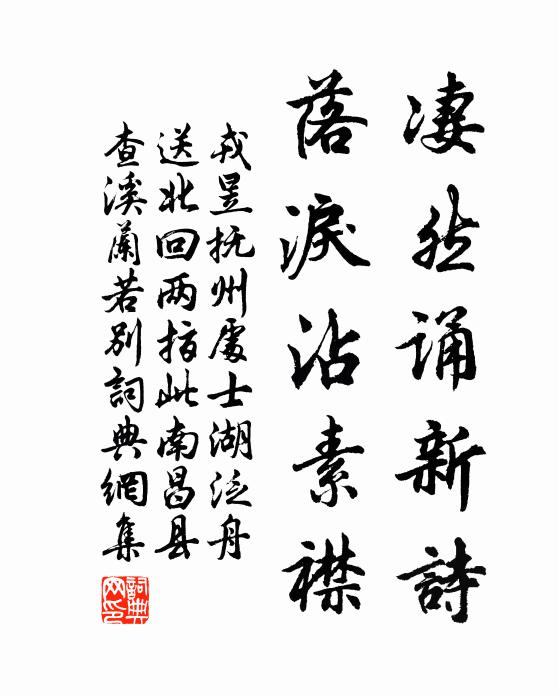 凄然诵新詩
落淚沾素襟
戎昱抚州處士湖泛舟
送北回两指此南昌县
查溪蘭若别詞典網集
詞典网印